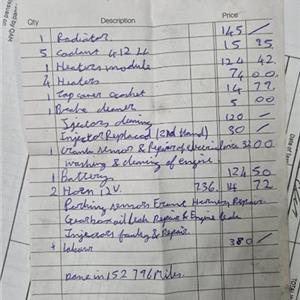 Qty Description Price
1 Radiator 145/
5 Coolant 4 12 L4 15 95
1 Heaters module 124 42
4 Heaters 74 00
1 Tap cover gasket 14 79
1 Brake cleaner 5 00
Injectors clening 120/
Injector Replaced (2nd Hand) 30/
1 sensor & Repair of 32.00
washing & clening of engine
1 Battery 124 50
2 Horn 12V. 736. 14 72
Parking sensors Harness Repair
Gearbox oil Leak Repair & Engine Leak
Injectors faulty & Repair
4 Labour 380/
Done in 152 796 Miles.